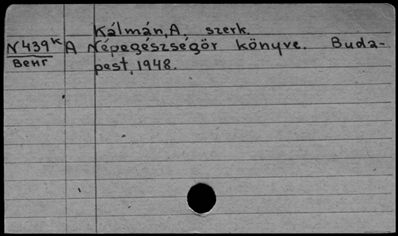 Kálmán, A. szerk.
N439k A Népegészségör könyve. Buda-
Венг pest, 1948.